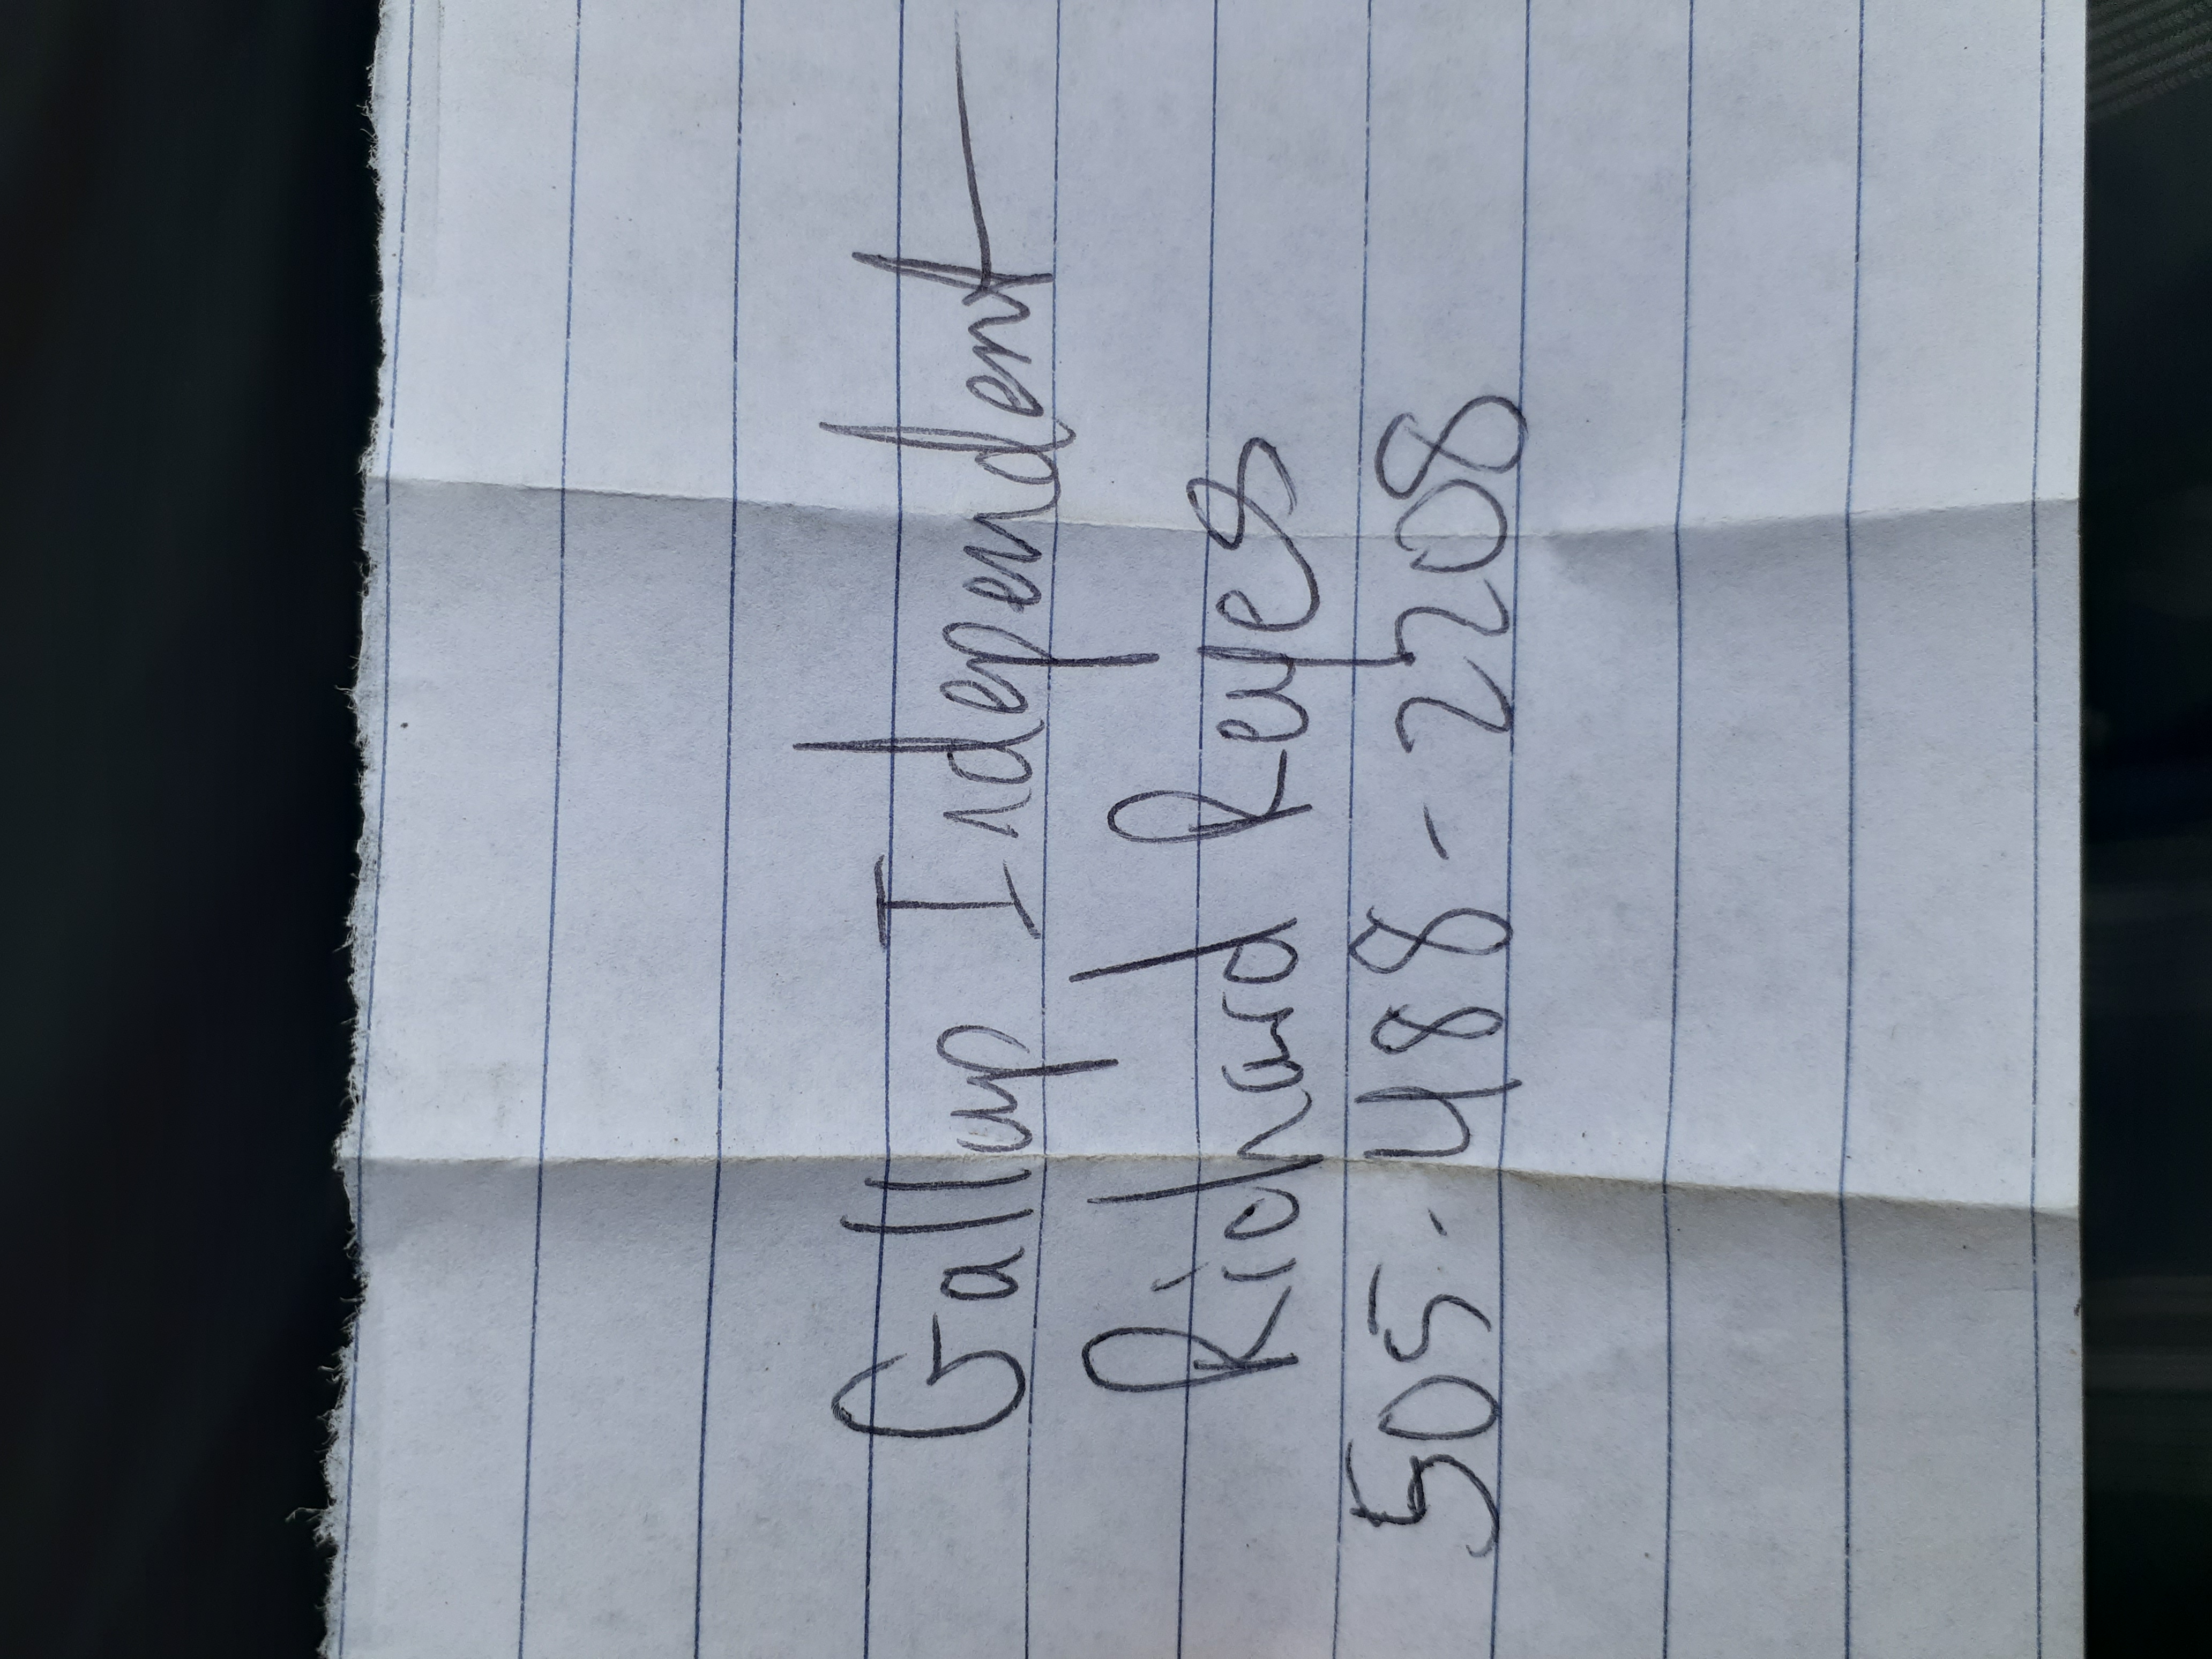 Gallup Independent
Richard Reyes
505-488-2208